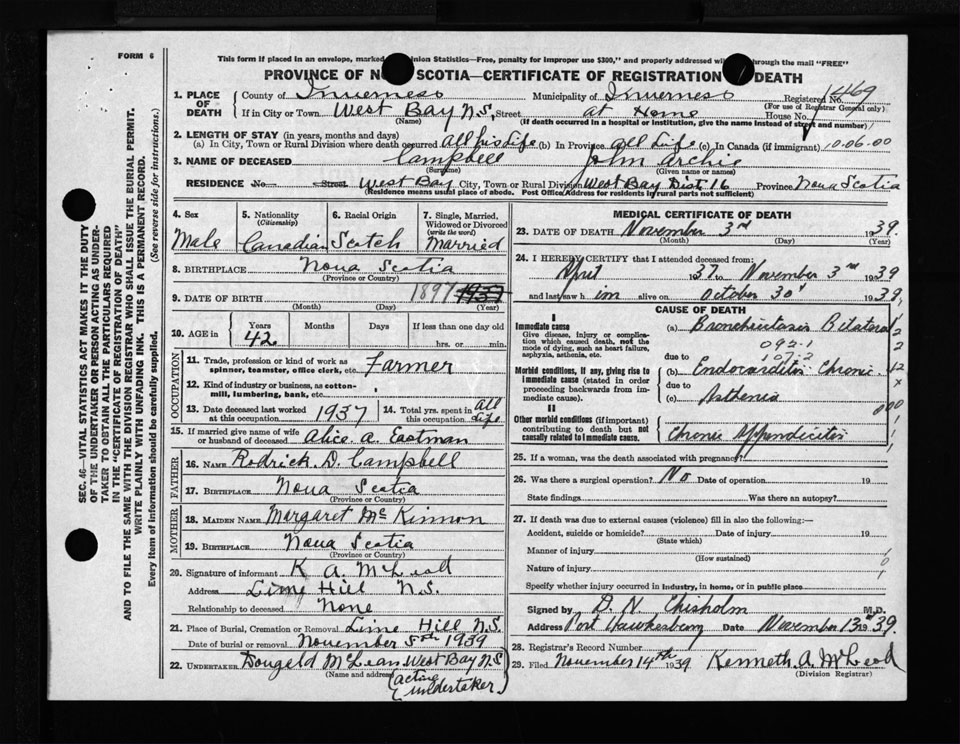 FORM 6
This form if placed in an envelope, marked Dominion Statistics—Free, penalty for improper use $300, and properly addressed will through the mail "FREE"
PROVINCE OF NOVA SCOTIA—CERTIFICATE OF REGISTRATION OF DEATH
1. PLACE OF DEATH County of Inverness Municipality of Inverness Registered No. 1469
(For use of Registrar General only)
If in City or Town West Bay N.S. Street at Home House No.
(Name) (If death occurred in a hospital or institution, give the name instead of street and number)
2. LENGTH OF STAY (in years, months and days)
(a) In City, Town or Rural Division where death occurred all his life (b) In Province all Life (c) In Canada (if immigrant) 10.06.00
3. NAME OF DECEASED Campbell John Archie
(Surname) (Given name or names)
RESIDENCE No. Street West Bay City, Town or Rural Division West Bay Dist 16 Province Nova Scotia
(Residence means usual place of abode. Post Office Address for residents in rural parts not sufficient)
4. Sex Male
5. Nationality (Citizenship) Canadian
6. Racial Origin Scotch
7. Single, Married, Widowed or Divorced (write the word) Married
8. BIRTHPLACE Nova Scotia
(Province or Country)
9. DATE OF BIRTH 1897 1937
(Month) (Day) (Year)
10. AGE in Years 42 Months Days If less than one day old
hrs. or min.
OCCUPATION
11. Trade, profession or kind of work as spinner, teamster, office clerk, etc. Farmer
12. Kind of industry or business, as cotton-mill, lumbering, bank, etc.
13. Date deceased last worked at this occupation 1937
14. Total yrs. spent in this occupation all Life
15. If married give name of wife or husband of deceased Alice. A. Eastman
FATHER
16. NAME Rodrick. D. Campbell
17. BIRTHPLACE Nova Scotia
(Province or Country)
MOTHER
18. MAIDEN NAME Margaret McKinnon
19. BIRTHPLACE Nova Scotia
(Province or Country)
20. Signature of informant K A. McLeod
Address Lime Hill N.S.
Relationship to deceased None
21. Place of Burial, Cremation or Removal Lime Hill N.S.
Date of burial or removal November 5th 1939
22. UNDERTAKER Dougald McLean West Bay N.S
(Name and address) (acting undertaker)
MEDICAL CERTIFICATE OF DEATH
23. DATE OF DEATH November 3rd 1939.
(Month) (Day) (Year)
24. I HEREBY CERTIFY that I attended deceased from:
April 1937 to November 3rd 1939
and last saw him alive on October 30th 1939,
CAUSE OF DEATH
I
Immediate cause
Give disease, injury or complication which caused death, not the mode of dying, such as heart failure, asphyxia, asthenia, etc.
(a) Bronchiectasis Bilateral
092.1
due to 107.2
Morbid conditions, if any, giving rise to immediate cause (stated in order proceeding backwards from immediate cause).
(b) Endocarditis Chronic
due to
(c) Asthenia
II
Other morbid conditions (if important) contributing to death but not causally related to immediate cause.
Chronic Appendicitis
25. If a woman, was the death associated with pregnancy?
26. Was there a surgical operation? No Date of operation 19
State findings Was there an autopsy?
27. If death was due to external causes (violence) fill in also the following:—
Accident, suicide or homicide? Date of injury 19
(State which)
Manner of injury
(How sustained)
Nature of injury
Specify whether injury occurred in industry, in home, or in public place
Signed by D. N. Chisholm M.D.
Address Port Hawkesbury Date November 13th 1939.
28. Registrar's Record Number
29. Filed November 14th 1939 Kenneth. A. McLeod
(Division Registrar)
SEC. 46—VITAL STATISTICS ACT MAKES IT THE DUTY
OF THE UNDERTAKER OR PERSON ACTING AS UNDER-
TAKER TO OBTAIN ALL THE PARTICULARS REQUIRED
IN THE "CERTIFICATE OF REGISTRATION OF DEATH"
AND TO FILE THE SAME WITH THE DIVISION REGISTRAR WHO SHALL ISSUE THE BURIAL PERMIT.
WRITE PLAINLY WITH UNFADING INK. THIS IS A PERMANENT RECORD.
Every item of information should be carefully supplied. (See reverse side for instructions.)